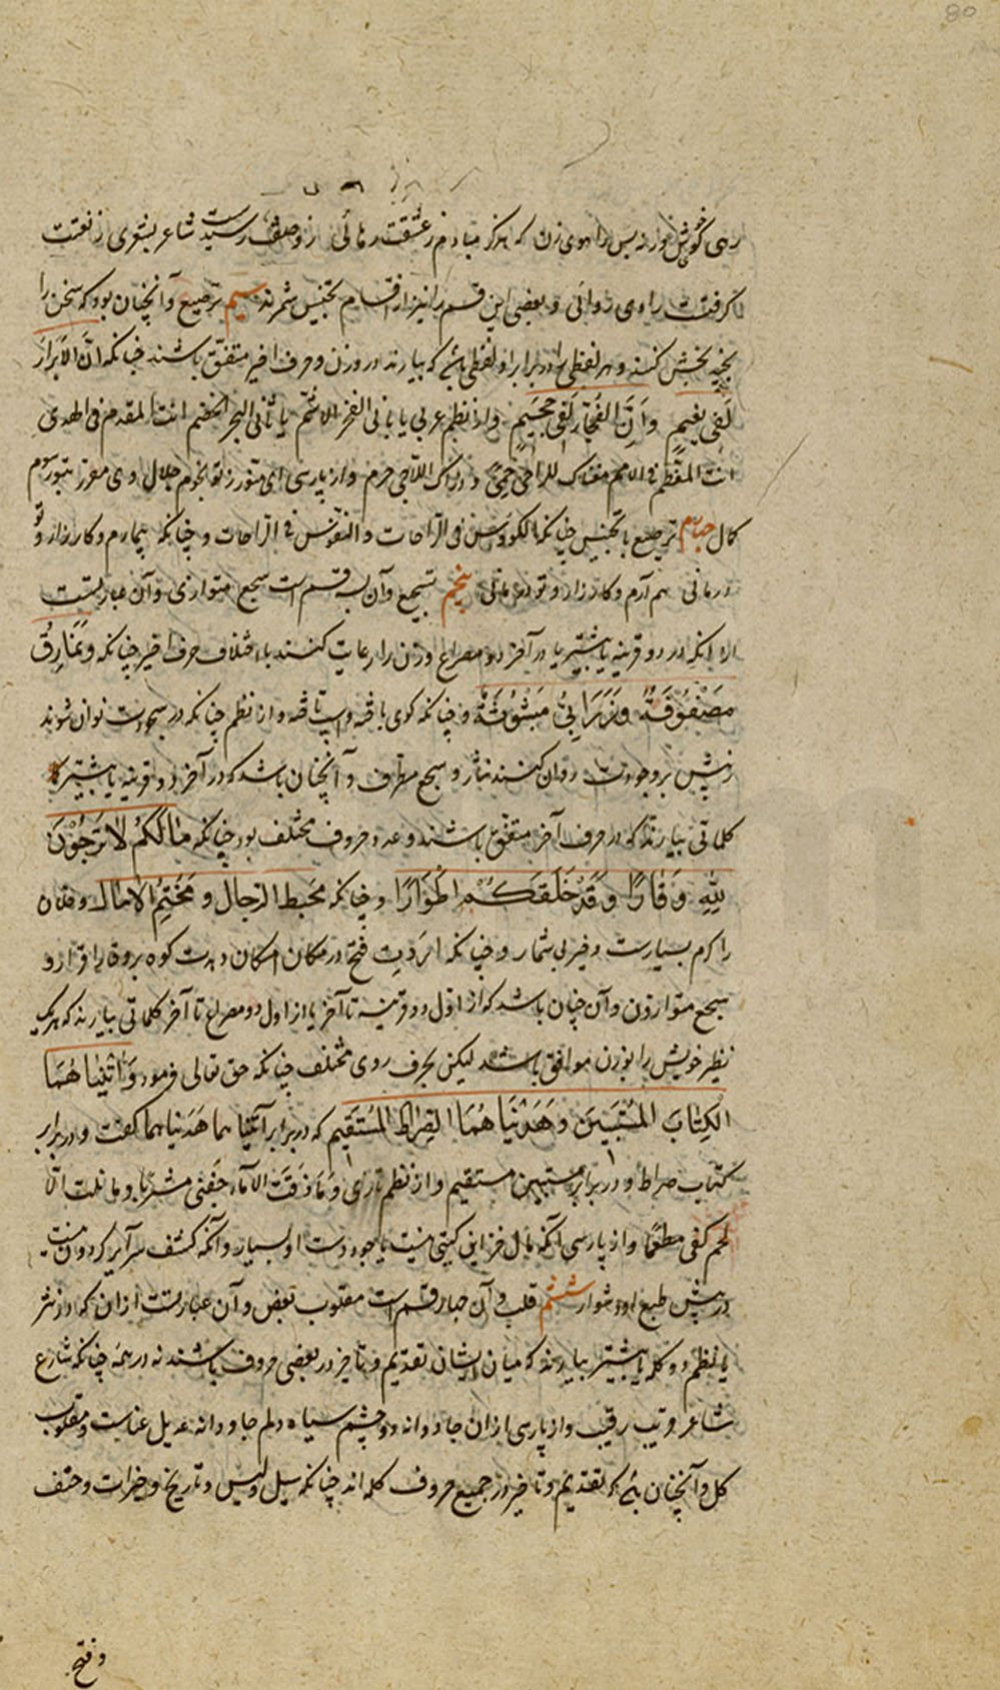 80
رهی گوش از نه بس راهوی زن که هرگز مبادم ز عشقت رهائی ز وصلت رسیدست شاعر بشعری ز نعتت
گرفتست راوی روائی و بعضی این قسم را نیز از اقسام تجنیس شمرند سیم ترصیع و آنچنان بود که سخن را
بخش بخش کنند و هر لفظی را در برابر او لفظی که بیارند در وزن و حرف اخیر متفق باشند چنانکه ان الابرار
لفی نعیم و ان الفجار لفی جحیم و از نظم عربی یا بانی الفخر الاشم یا ثانی البحر الخضم انت المقدم فی الهدی
انت المعظم فی الامم مغناک للراجی حمی و ذراک اللاجی حرم و از پارسی ای منور ز تو نجوم جلال وی مقرر بتو رسوم
کمال چهارم ترصیع با تجنیس چنانکه الکؤوس فی الراحات و النفوس فی الراحات و چنانکه بیمارم و کارزار و تو
درمانی بیم آرم و کارزار و تو درمانی پنجم تسجیع و آن سه قسم است سجع متوازی و آن عبارتست
از آنکه در دو قرینه یا بیشتر یا در آخر دو مصراع وزن را رعایت کنند با اختلاف حرف اخیر چنانکه و نمارق
مصفوفة و زرابی مبثوثة و چنانکه و از نظم چنانکه
پیش بر وجودت روان کنند نثار و سجع مطرف و آنچنان باشد که در آخر دو قرینه یا بیشتر
کلماتی بیارند که در حرف آخر متفق باشند و عدد حروف مختلف بود چنانکه مالکم لا ترجون
لله وقارا و قد خلقکم اطوارا و چنانکه محیط الرجال و مخیم الآمال و فلان
را کرم بسیارست و خیر بی شمار و چنانکه فتح در مکان امکان کوه برو قرار و
سجع متوازن و آن چنان باشد که از اول دو قرینه تا آخر یا از اول دو مصراع تا آخر کلماتی بیارند که هر یک
نظیر خویش را بوزن موافق باشد لیکن بحرف روی مختلف چنانکه حق تعالی فرمود و آتیناهما
الکتاب المستبین و هدیناهما الصراط المستقیم که در برابر آتیناهما هدیناهما گفت و در برابر
کتاب صراط و در برابر مستبین مستقیم و از نظم تازی و ما ذقت الا ماء جفنی مشربا و ما نلت الا
لحم کفی مطعما و از پارسی آنکه مال خزاین گیتی نیست با جود دست او بسیار و آنکه کشف سرایر گردون نیست
در پیش طبع او دشوار ششم قلب و آن چهار قسم است مقلوب بعض و آن عبارتست از آن که در نثر
یا نظم دو کلمه یا بیشتر بیارند که میان ایشان تقدیم و تاخیر در بعضی حروف باشند نه در همه چنانکه شارع
شاعر و رقیب و از پارسی از آن جادوانه دو چشم سیاه دلم جاودانه عدیل عناست و مقلوب
کل و آنچنان که تقدیم و تاخیر در جمیع حروف کلمه اند چنانکه سیل و لیس و تاریخ و خیرات و حتف
و فتح